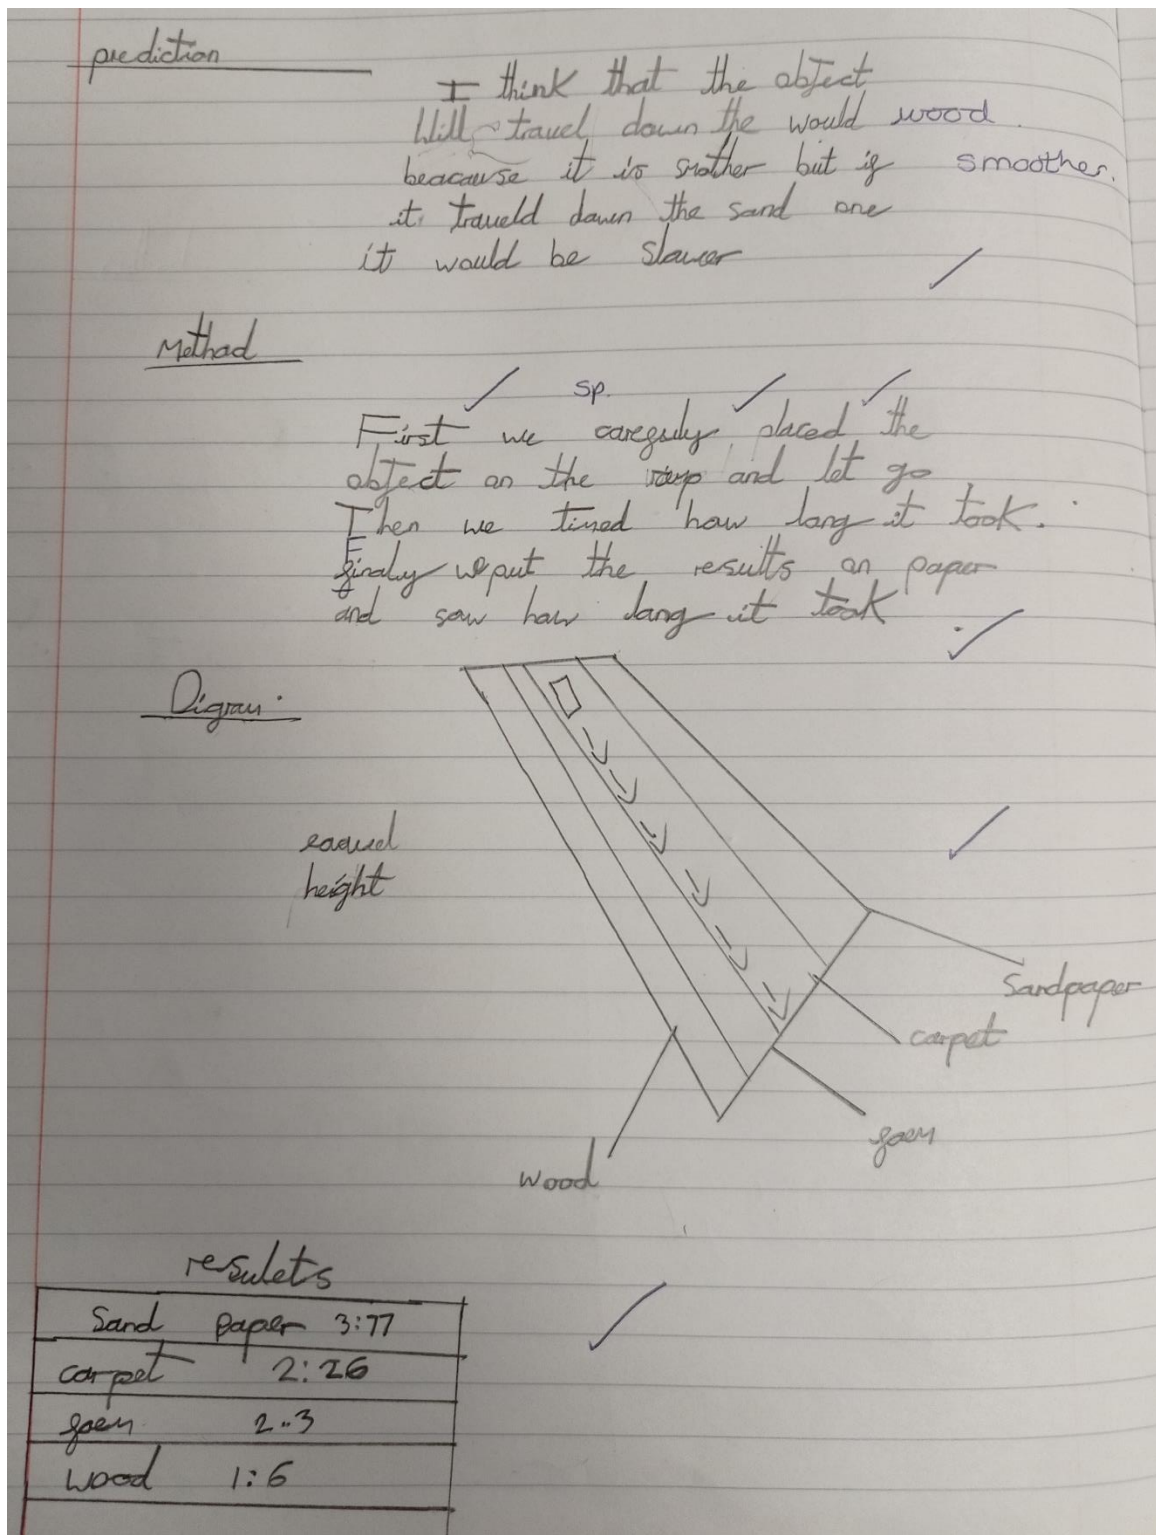 prediction
I think that the object
Will travel down the would wood.
beacause it is smother but if smoother.
it traveld down the sand one
it would be slower
Method
sp.
First we carefuly placed the
object on the ramp and let go
Then we timed how long it took.
Finaly we put the results on paper
and saw how long it took.
Digram
eaquel
height
Sandpaper
carpet
foem
wood
resulets
Sand paper 3:77
carpet 2:26
foem 2..3
wood 1:6